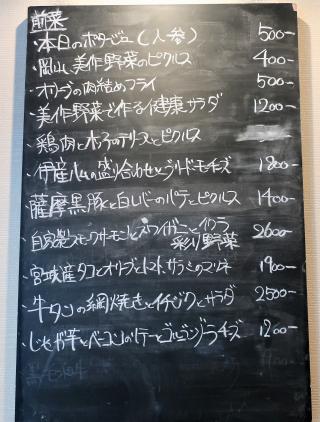 前菜
・本日のポタージュ(人参) 500-
・岡山、美作野菜のピクルス 400-
・オリーブの肉詰めフライ 500-
・美作野菜で作る健康サラダ 1200-
・鶏肉と木の子のテリーヌとピクルス
・伊産ハムの盛り合わせとグリーンドモチーズ 1800-
・薩摩黒豚と白レバーのパテとピクルス 1400-
・自家製スモークサーモンとズワイガニとイクラ 2600-
彩り野菜
・宮城産タコとオリーブとトマト、サラミのマリネ 1900-
・牛タンの網焼きとイチジクとサラダ 2500-
・じゃが芋とベーコンのソテーとゴルゴンゾーラチーズ 1200-